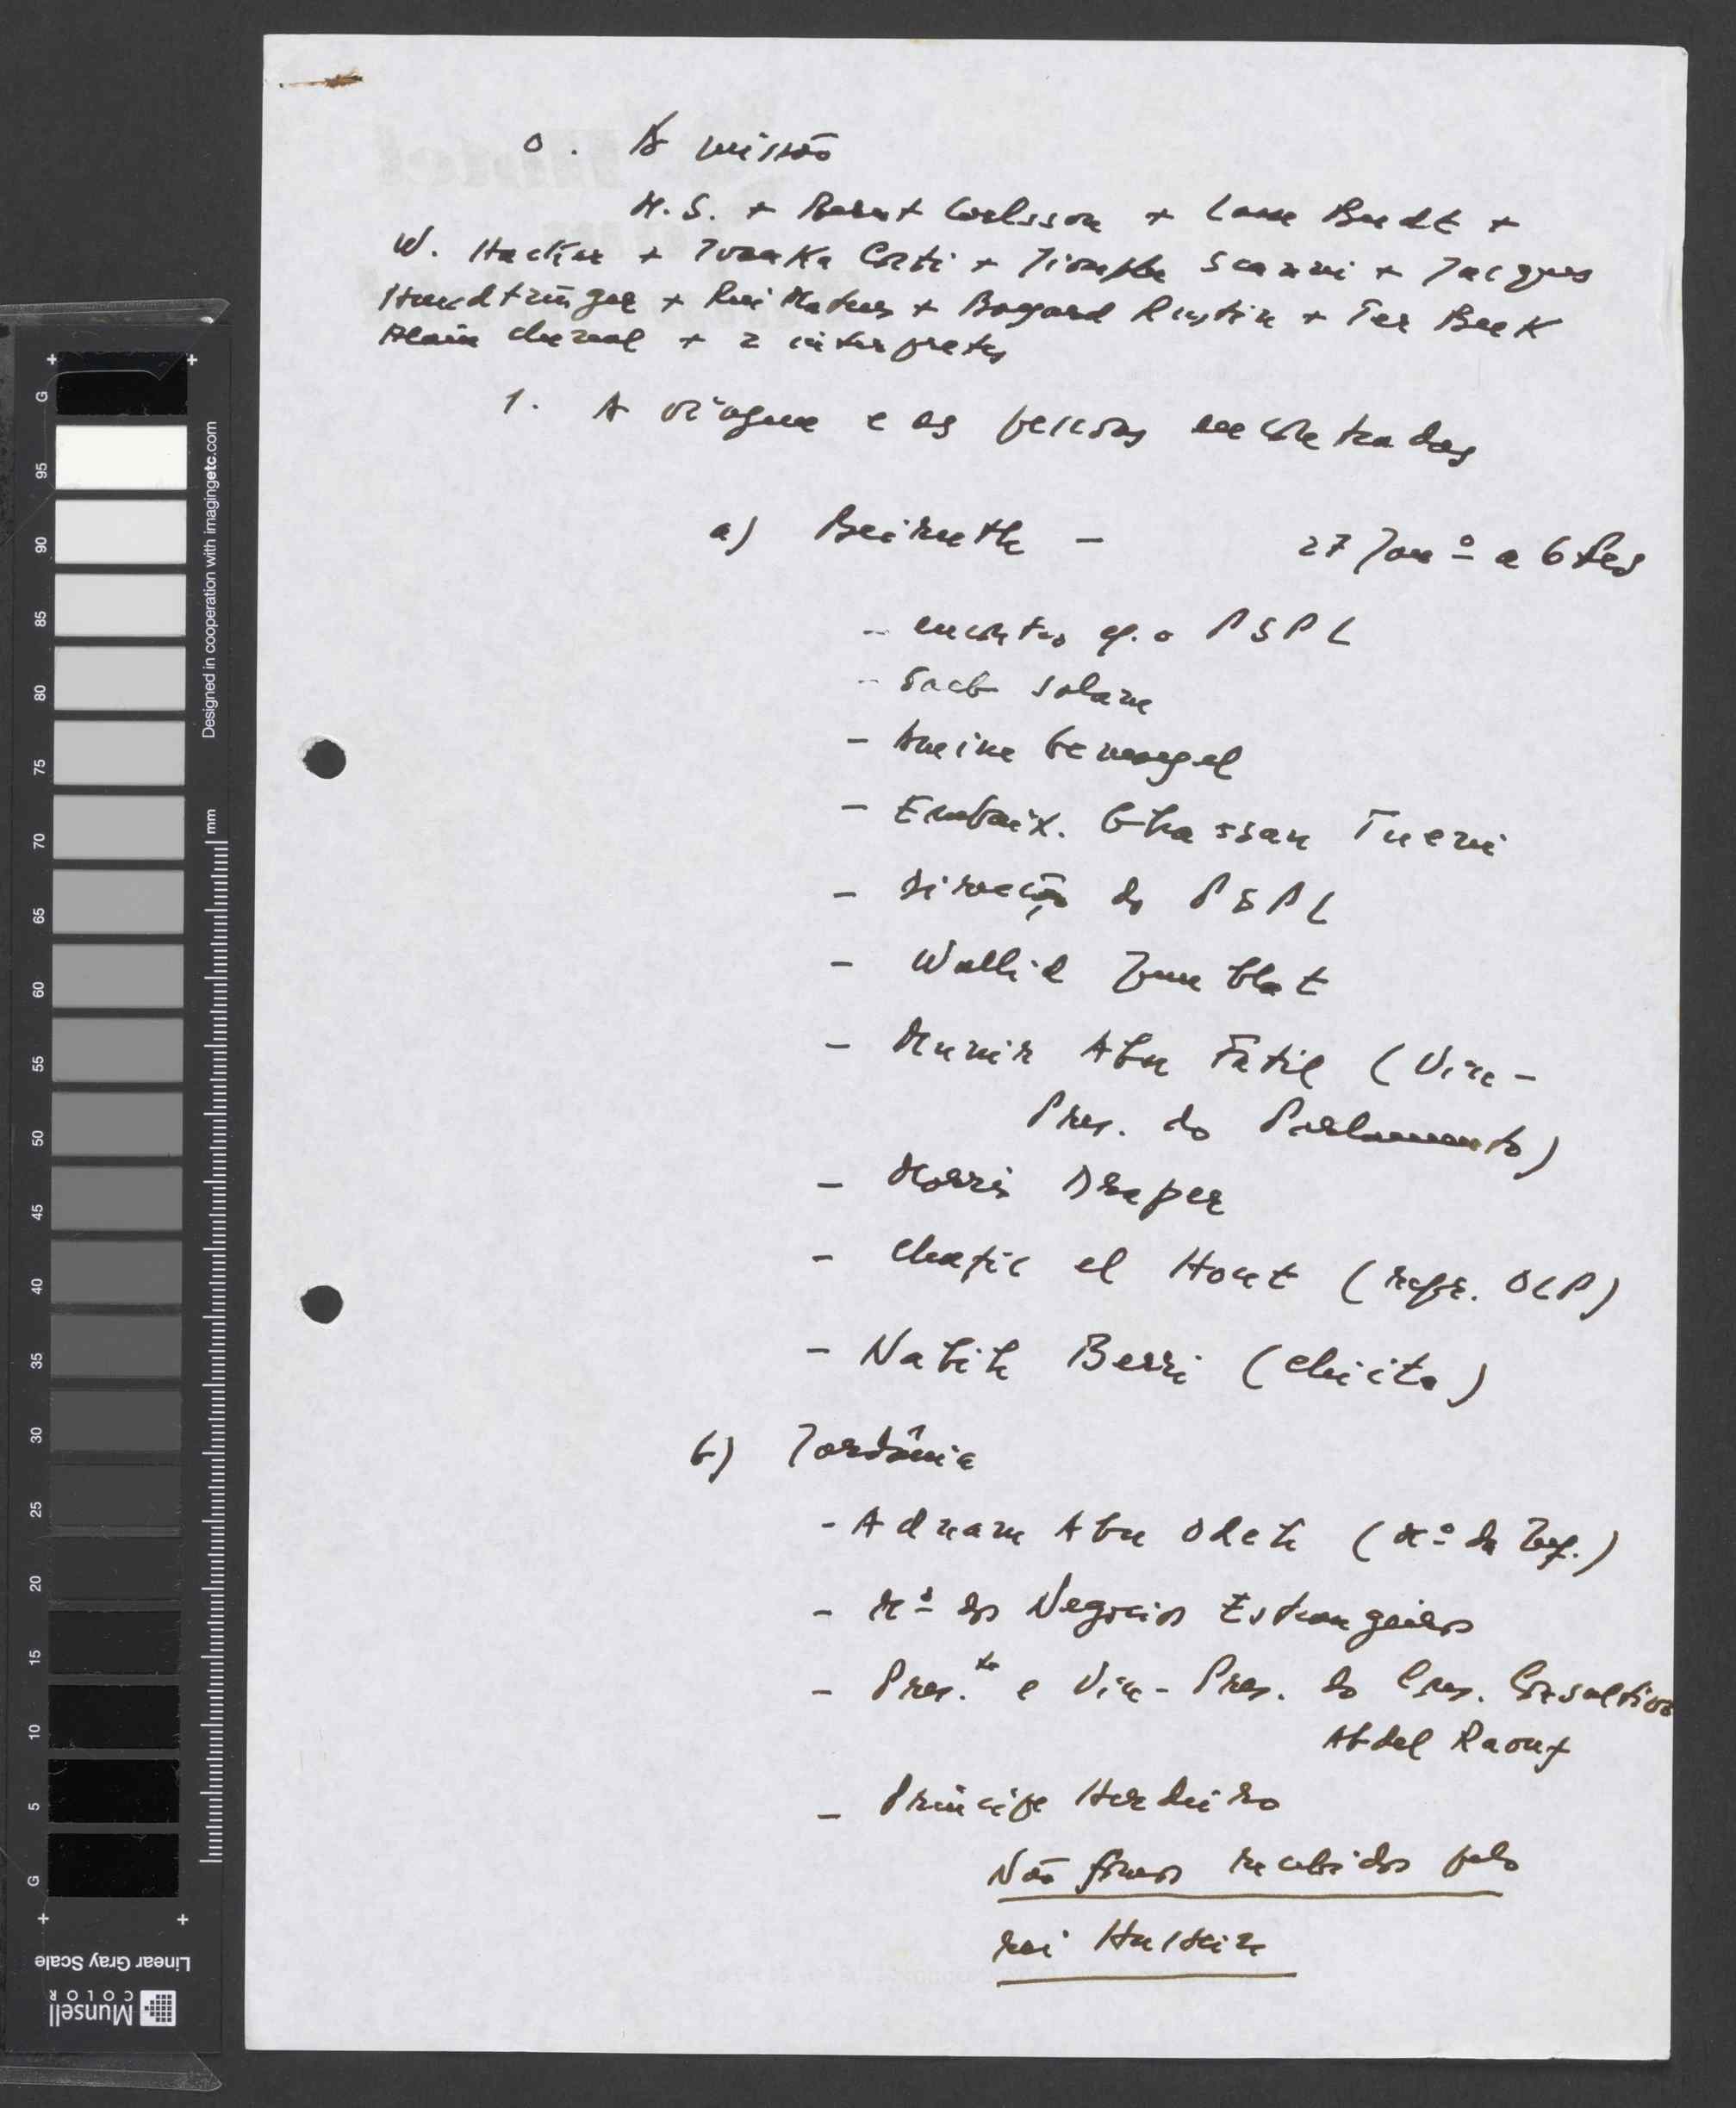 0. A missão
M.S. + Bernt Carlsson + Lasse Budt +
W. Hacker + Ivanka Corti + Scanni + Jacques
Hundtringer + Rui Mateus + Bayard Rustin + Ter Beek
Alain Chenal + 2 interpretes
1. A viagem e as pessoas encontradas
a) Beiruth - 27 Janº a 6 Fev
- encontro c/. o PSPL
- Saeb Salam
- Amine Gemayel
- Embaix. Ghassan Tueni
- Direcção do PSPL
- Wallid Jumblat
- Munir Abu Fatil (Vice-
Pres. do Parlamento)
- Morris Draper
- Chafic el Hout (repr. OLP)
- Nabih Berri (chiita)
b) Jordânia
- Adnam Abu Odeh (Mº da Inf.)
- Mº dos Negócios Estrangeiros
- Pres.te e Vice-Pres. do Cons. Consultivo
Abdel Raouf
- Príncipe Herdeiro
Não fomos recebidos pelo
rei Hussein
+ +
G
95
90
85
80
75
70
65
60
55
50
45
40
35
30
25
20
15
10
5
G
+ +
mm
Designed in cooperation with imagingetc.com
Linear Gray Scale
Munsell
COLOR